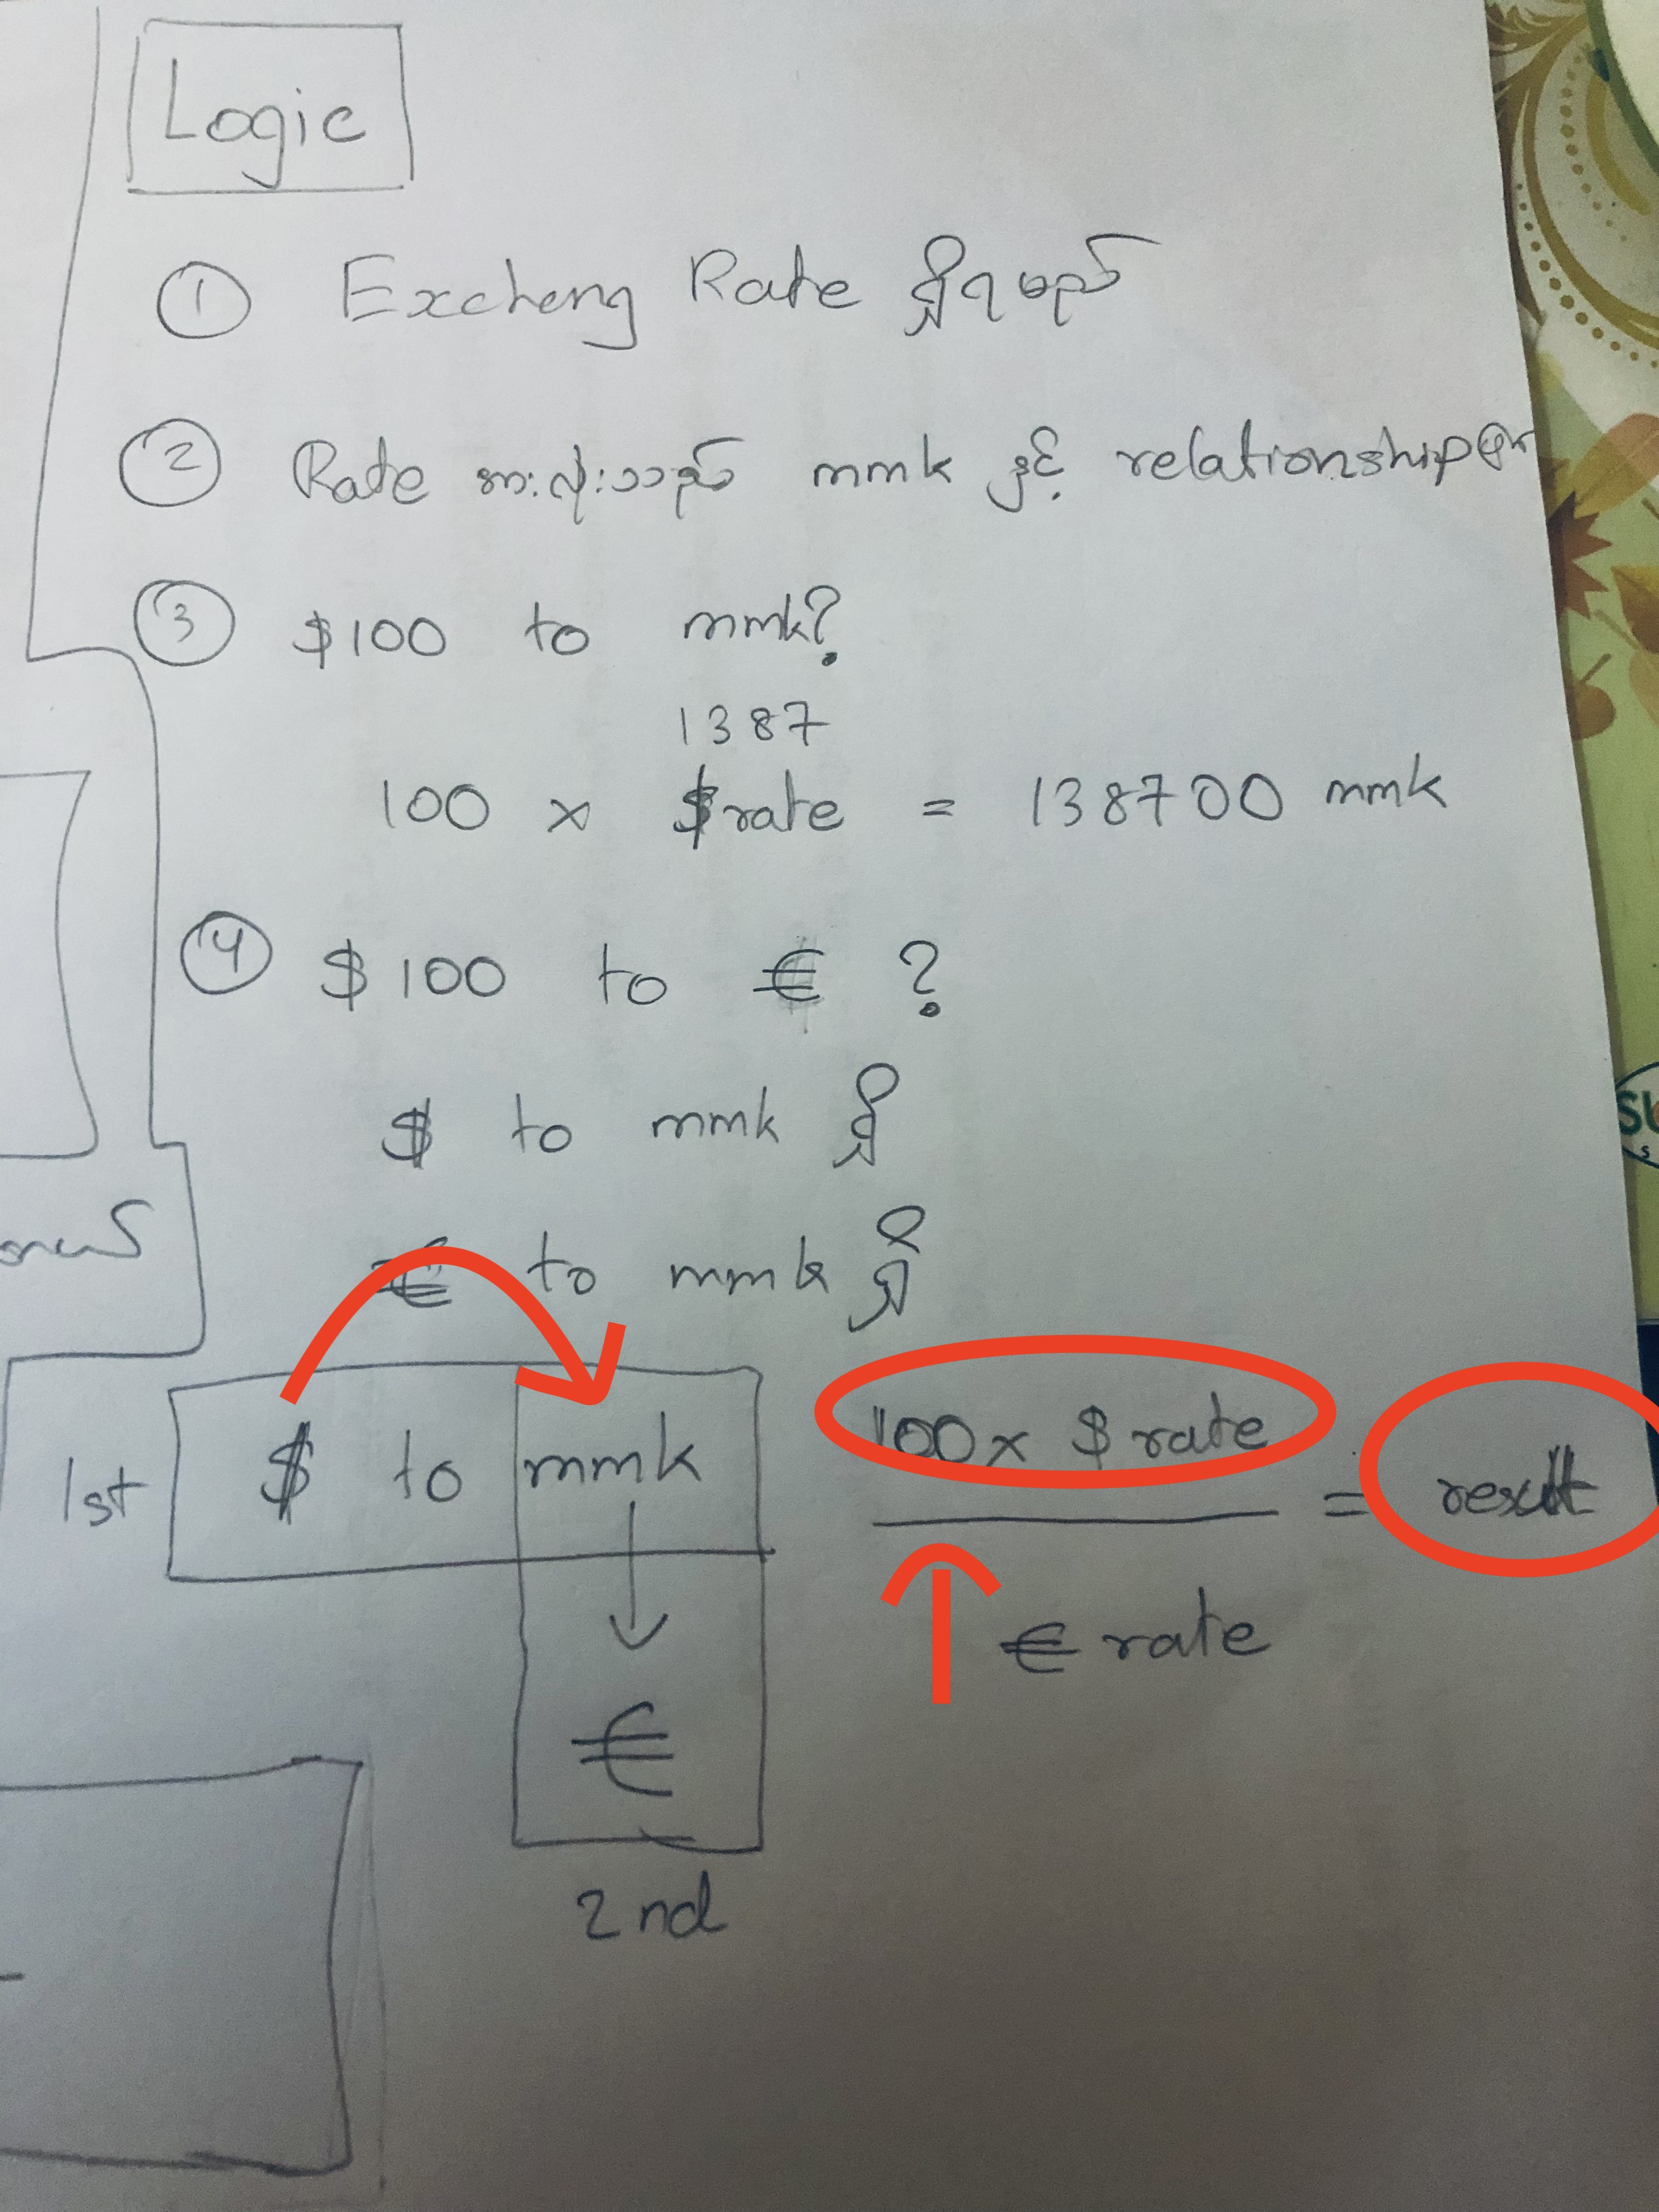 Logic
① Excheng Rate ရှိရမည်
② Rate အားလုံးသည် mmk နှင့် relationship
③ $100 to mmk?
1387
100 x $rate = 138700 mmk
④ $100 to € ?
$ to mmk ရှိ
€ to mmk ရှိ
1st $ to mmk
100 x $ rate = result
€ rate
€
2nd